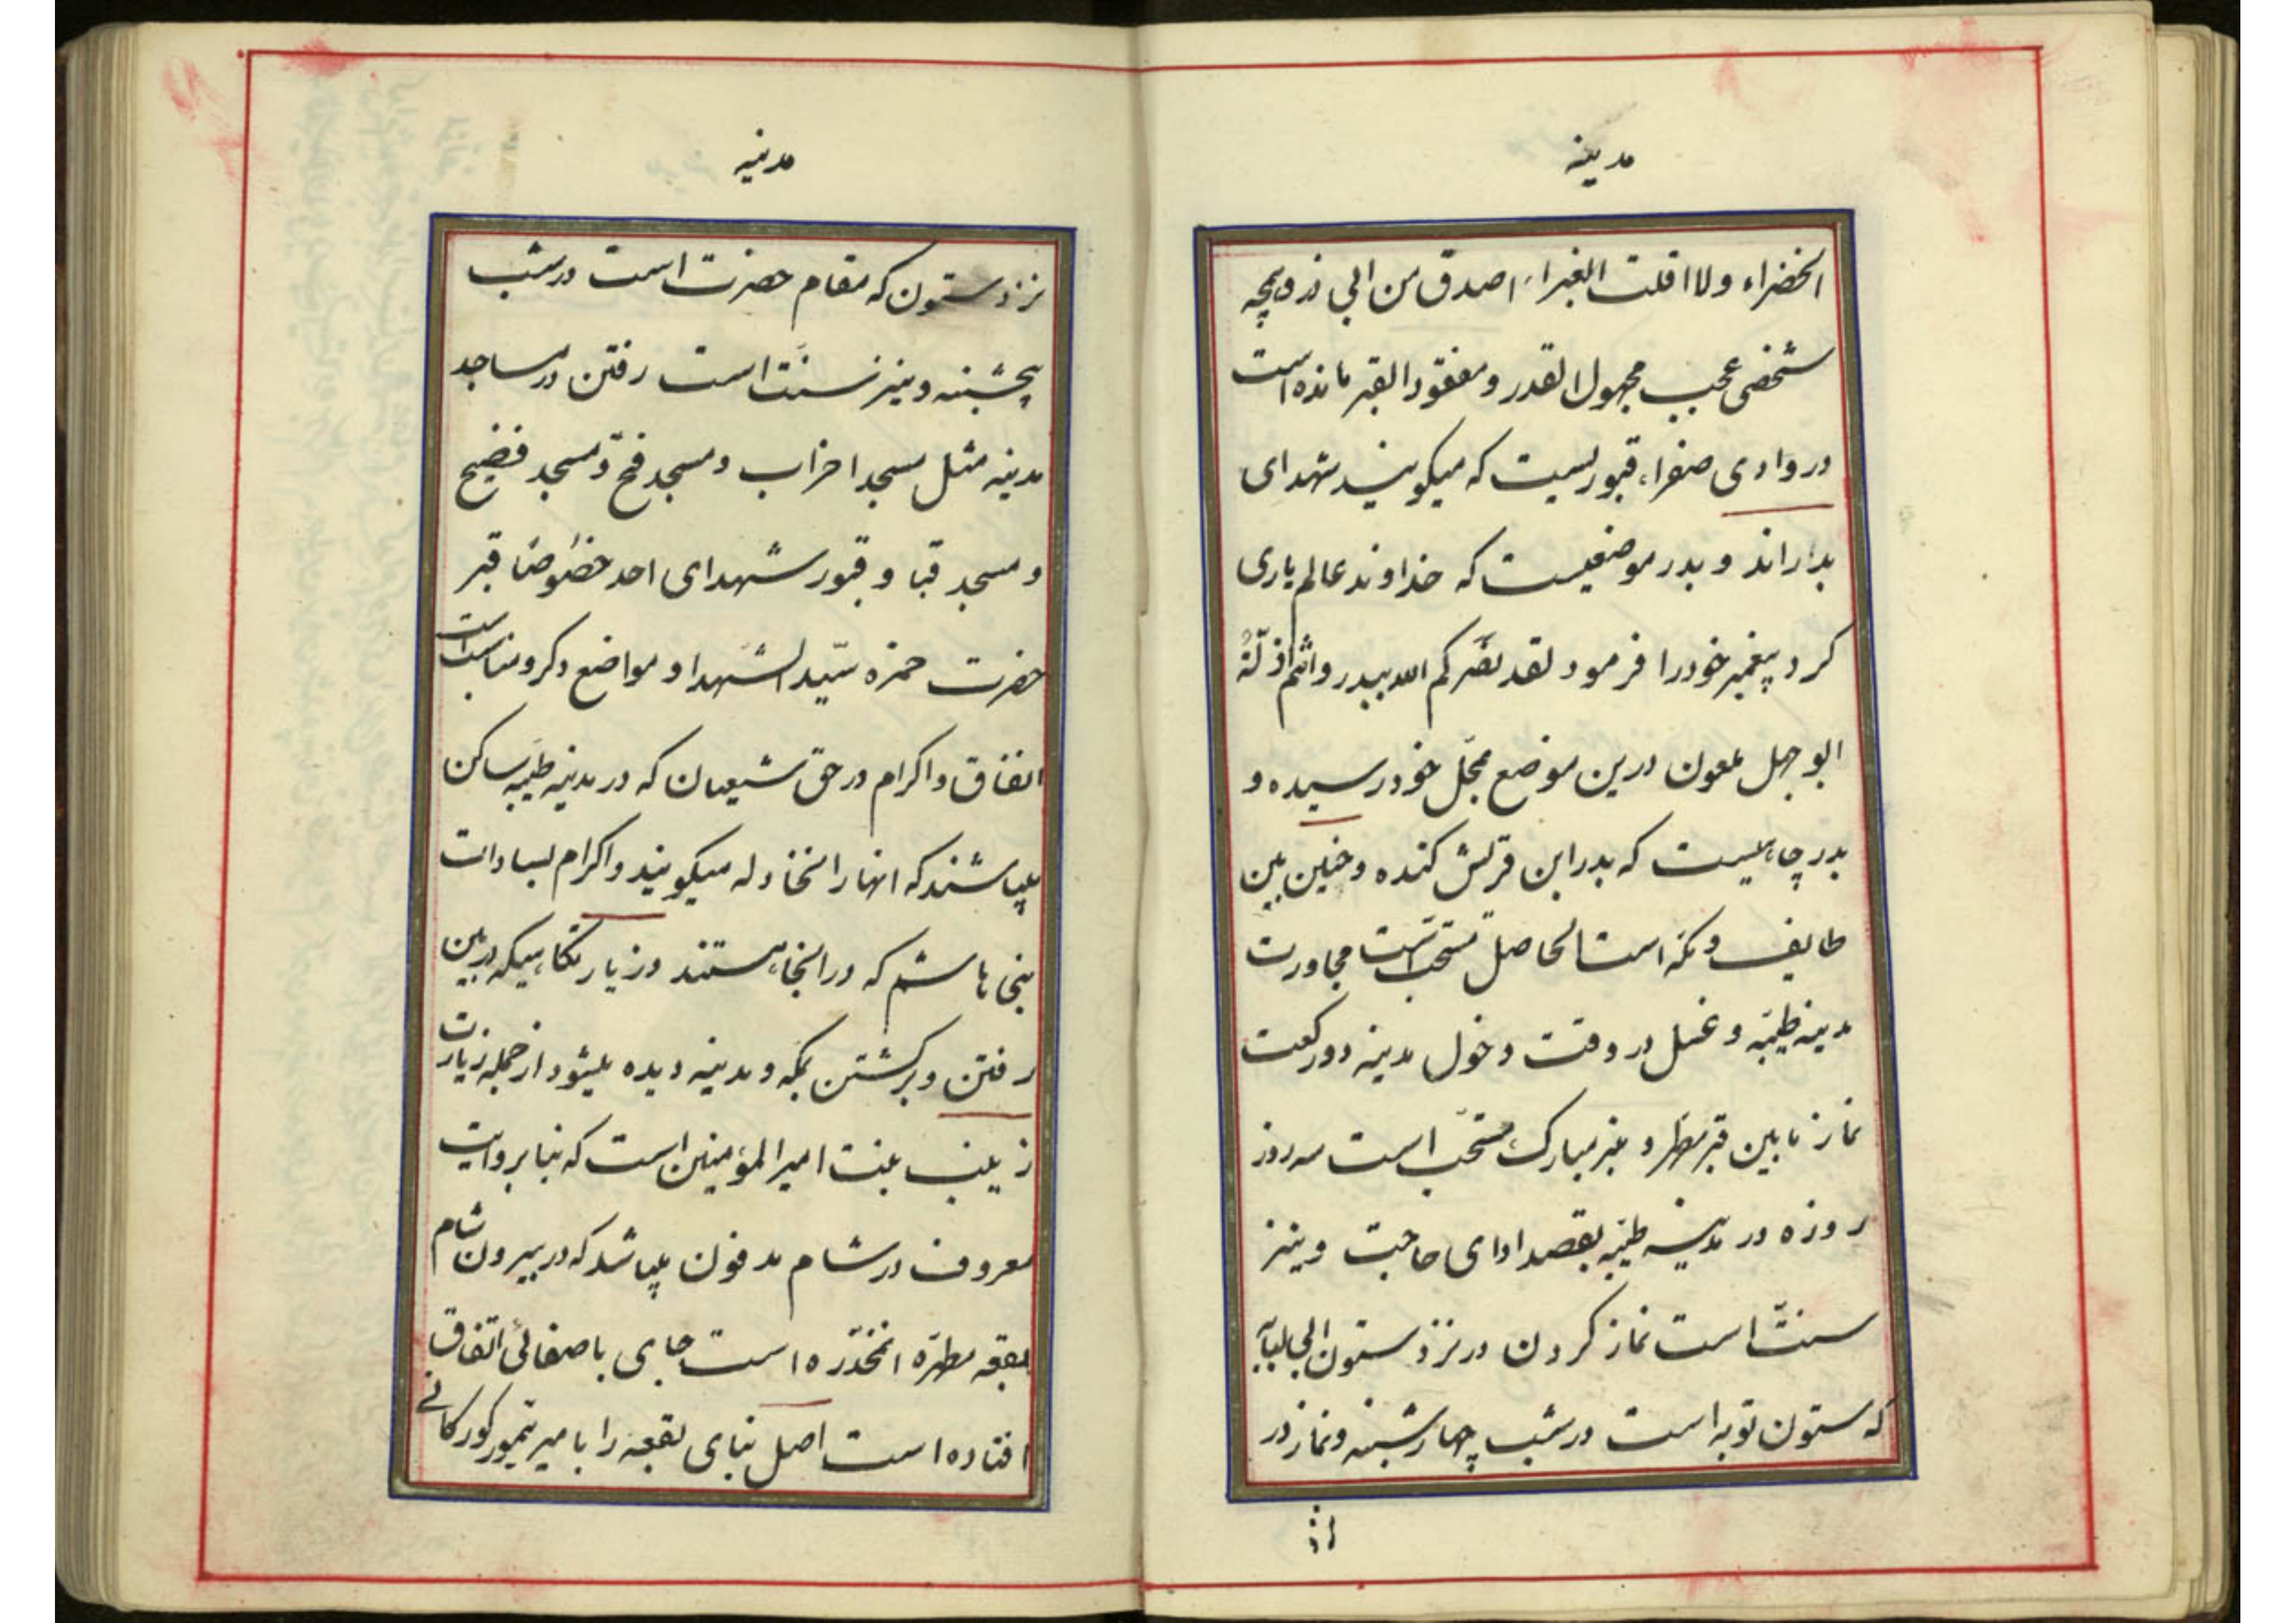 مدینه
الخضراء ولا اقلت الغبراء اصدق من ابی ذر ویچه
شخصی عجب مجهول القدر و مفقود القبر مانده است
در وادی صفراء قبوریست که میگویند شهدای
بدراند و بدر موضعیست که خداوند عالم یاری
کرد پیغمبر خود را فرمود لقد نصرکم الله ببدر وانتم اذلّة
ابوجهل ملعون درین موضع بمحلّ خود رسیده و
بدر چاهیست که بدر ابن قریش کنده و حنین بین
طایف و مکّه است الحاصل مستحبّ است مجاورت
مدینه طیّبه و غسل در وقت دخول مدینه دو رکعت
نماز مابین قبر مطهّر و منبر مبارک مستحبّ است سه روز
روزه در مدینه طیّبه بقصد ادای حاجت و نیز
سنّت است نماز کردن در نزد ستون ابی لبابه
که ستون توبه است در شب چهارشنبه و نماز در
مدینه
نزد ستون که مقام حضرت است در شب
پنجشبنه و نیز سنّت است رفتن در مساجد
مدینه مثل مسجد احزاب و مسجد فتح و مسجد فضیح
و مسجد قبا و قبور شهدای احد خصوصًا قبر
حضرت حمزه سیّد الشّهدا و مواضع دکر و مناسب است
انفاق و اکرام در حق شیعیان که در مدینه طیّبه ساکن
میباشند که انها را نخاوله میکویند و اکرام بسادات
بنی هاشم که در انجا هستند و زیارتکاهیکه در بین
رفتن و برکشتن بمکّه و مدینه دیده میشود از جمله زیارت
زینب بنت امیرالمؤمنین است که بنا بروایت
معروف در شام مدفون میباشد که در بیرون شام
بقعه مطهّره انمخدّره است جای باصفائی اتّفاق
افتاده است اصل بنای بقعه را با میر تیمور کورکانی